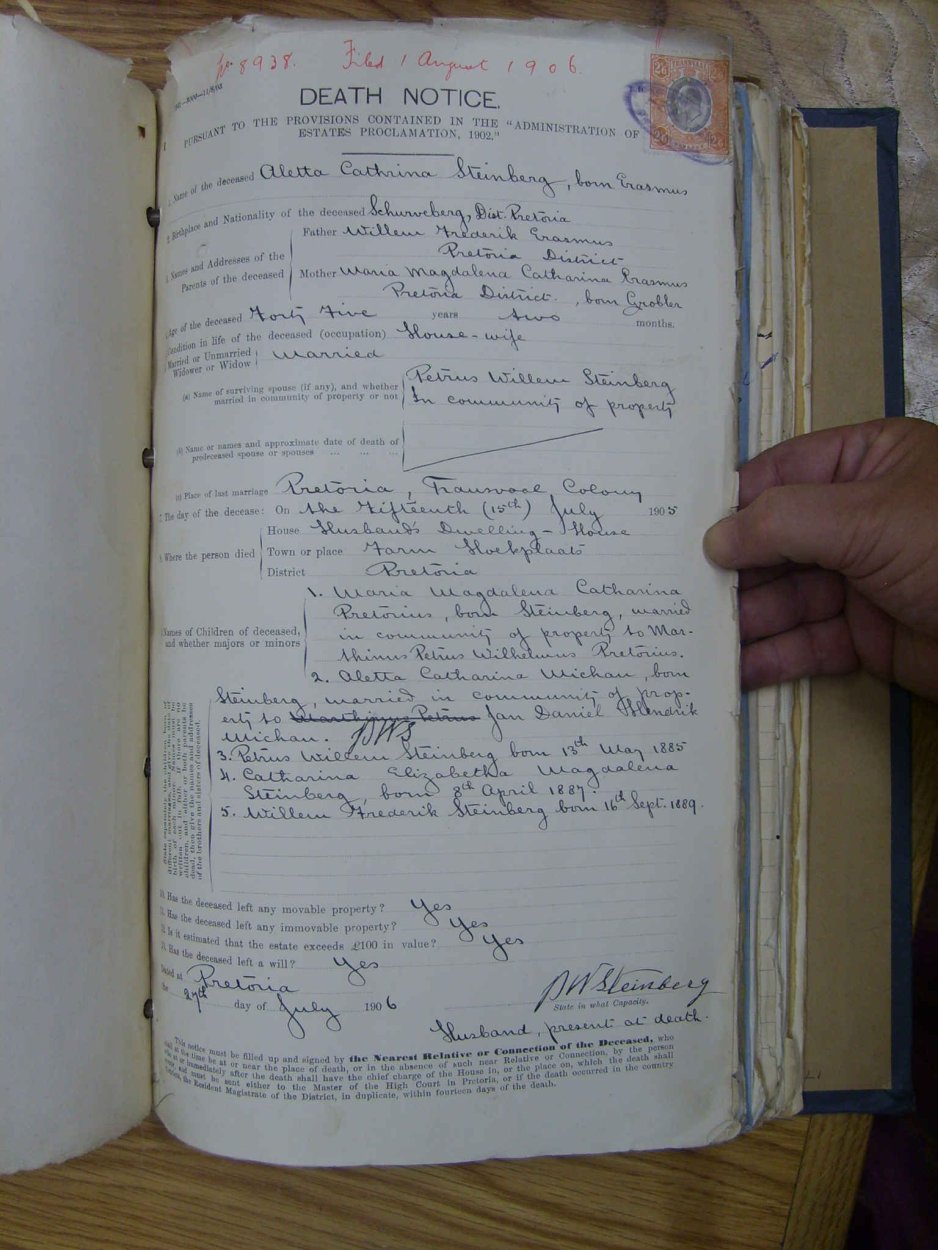 No 8938. Filed 1 August 1906.
DEATH NOTICE.
PURSUANT TO THE PROVISIONS CONTAINED IN THE "ADMINISTRATION OF
ESTATES PROCLAMATION, 1902."
1. Name of the deceased Aletta Cathrina Steinberg, born Erasmus
2. Birthplace and Nationality of the deceased Schurveberg, Dist. Pretoria
Father Willem Frederik Erasmus
Pretoria District
3. Names and Addresses of the
Parents of the deceased
Mother Maria Magdalena Catharina Erasmus
Pretoria District. , born Grobler
Age of the deceased Forty Five years two months.
Condition in life of the deceased (occupation) House-wife
Married or Unmarried
Widower or Widow
Married
(a) Name of surviving spouse (if any), and whether
married in community of property or not
Petrus Willem Steinberg
In community of property
(b) Name or names and approximate date of death of
predeceased spouse or spouses ... ... ...
(c) Place of last marriage Pretoria, Transvaal Colony
7. The day of the decease: On the Fifteenth (15th) July 1905
House Husband's Dwelling-House
8. Where the person died
Town or place Farm Hoekplaats
District Pretoria
Names of Children of deceased,
and whether majors or minors
1. Maria Magdalena Catharina
Pretorius, born Steinberg, married
in community of property to Mar-
thinus Petrus Wilhelmus Pretorius.
2. Aletta Catharina Michau, born
Steinberg, married in community of prop-
erty to Marthinus Petrus Jan Daniel Hendrik
Michau. PWS
3. Petrus Willem Steinberg born 13th May 1885
4. Catharina Elizabetha Magdalena
Steinberg, born 8th April 1887.
5. Willem Frederik Steinberg born 16th Sept. 1889.
State separately the children born of
different marriages, and give the date of
birth of each minor. Names must be
written out in full. If there are no
children, and either or both parents be
dead, then give the names and addresses
of the brothers and sisters of deceased.
10. Has the deceased left any movable property? Yes
11. Has the deceased left any immovable property? Yes
12. Is it estimated that the estate exceeds £100 in value? Yes
13. Has the deceased left a will? Yes
Dated at Pretoria
the 27th day of July 1906
PW Steinberg
State in what Capacity.
Husband, present at death.
This notice must be filled up and signed by the Nearest Relative or Connection of the Deceased, who
shall at the time be at or near the place of death, or in the absence of such near Relative or Connection, by the person
who at or immediately after the death shall have the chief charge of the House in, or the place on, which the death shall
occur, and must be sent either to the Master of the High Court in Pretoria, or if the death occurred in the country
the Resident Magistrate of the District, in duplicate, within fourteen days of the death.